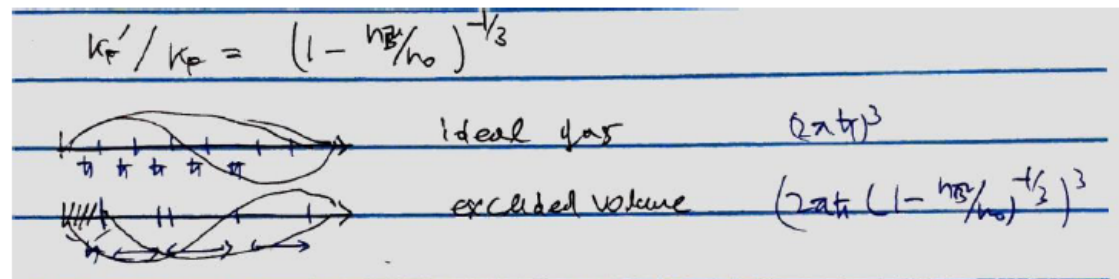 k_F'/k_F = (1 - n_B/n_0)^{-1/3}
ideal gas (2πħ)^3
ħ ħ ħ ħ ħ
excluded volume (2πħ(1 - n_B/n_0)^{-1/3})^3
ħ